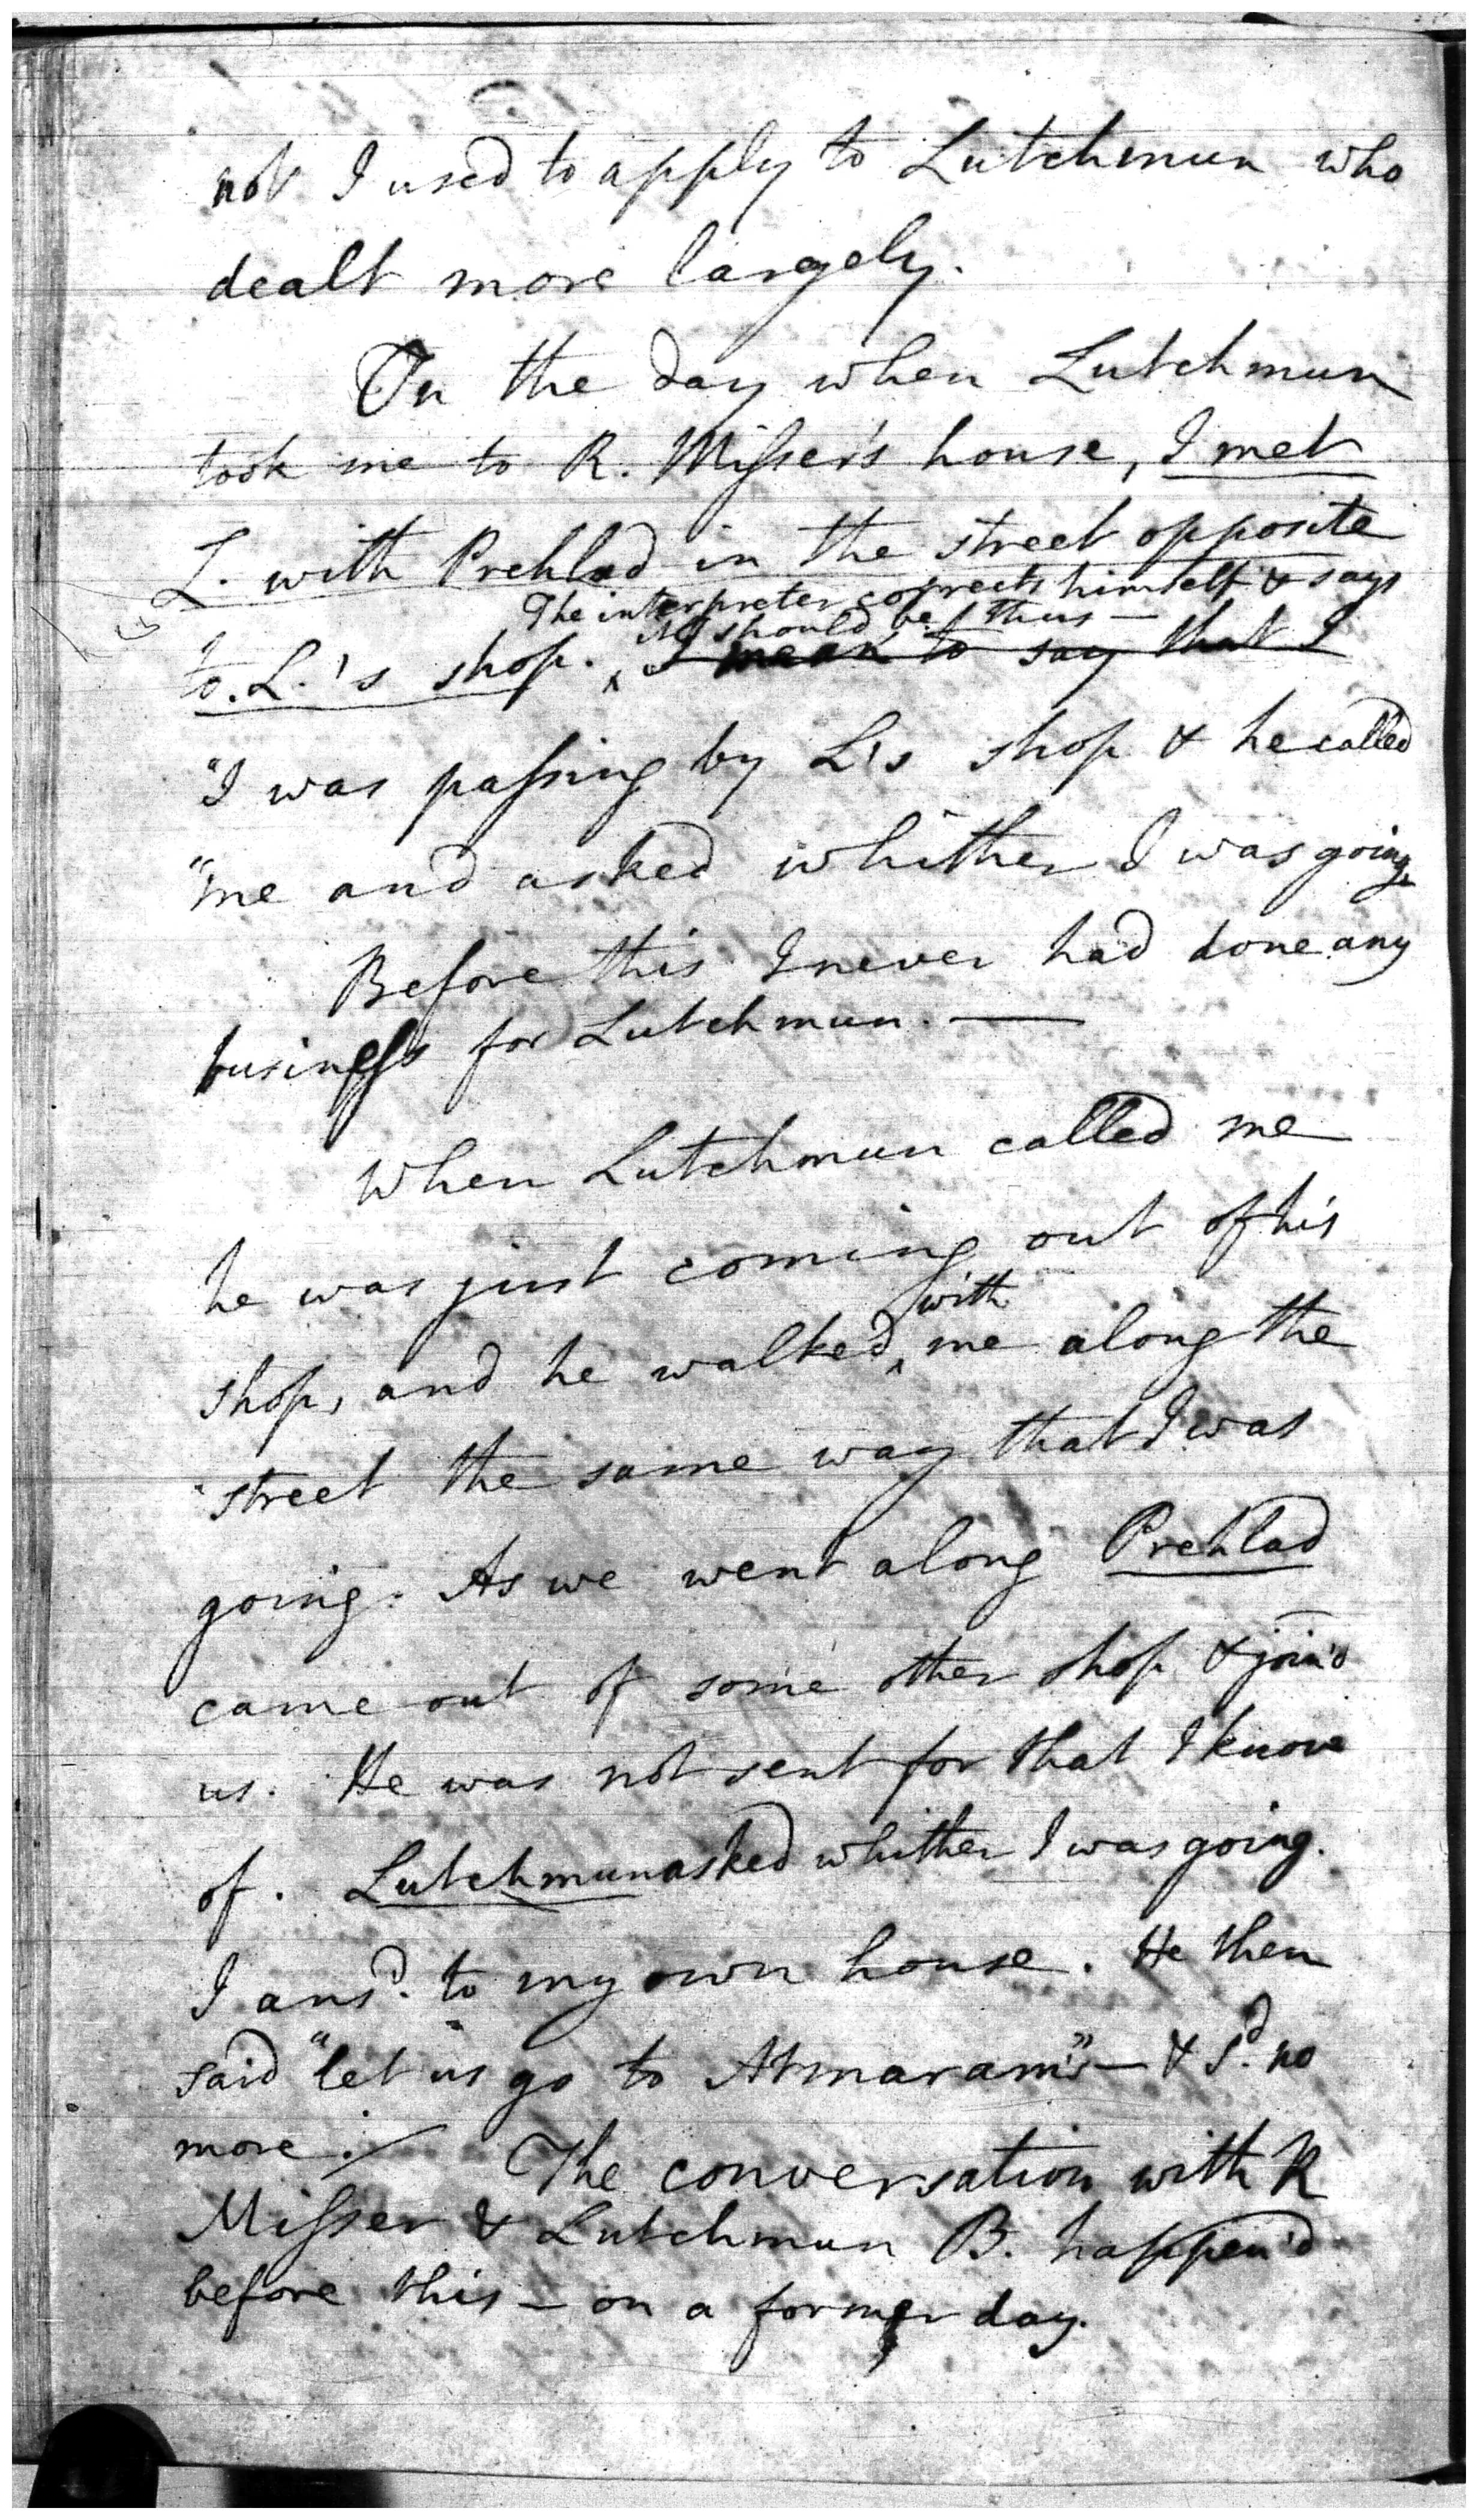 not I used to apply to Lutchmun who
dealt more largely.
On the day when Lutchmun
took me to R. Misser's house, I met
L. with Prehlad in the street opposite
The interpreter corrects himself & says
it should be thus —
to L.'s shop. I mean to say that I
"I was passing by L's shop & he called
"me and asked whither I was going.
Before this I never had done any
business for Lutchmun. —
When Lutchmun called me
he was just coming out of his
with
shop, and he walked me along the
street the same way that I was
going. As we went along Prehlad
came out of some other shop & join'd
us. He was not sent for that I know
of. Lutchmun asked whither I was going.
I ansd. to my own house. He then
said "let us go to Atmaram's" — & sd. no
more. The conversation with R
Misser & Lutchmun B. happen'd
before this — on a former day.